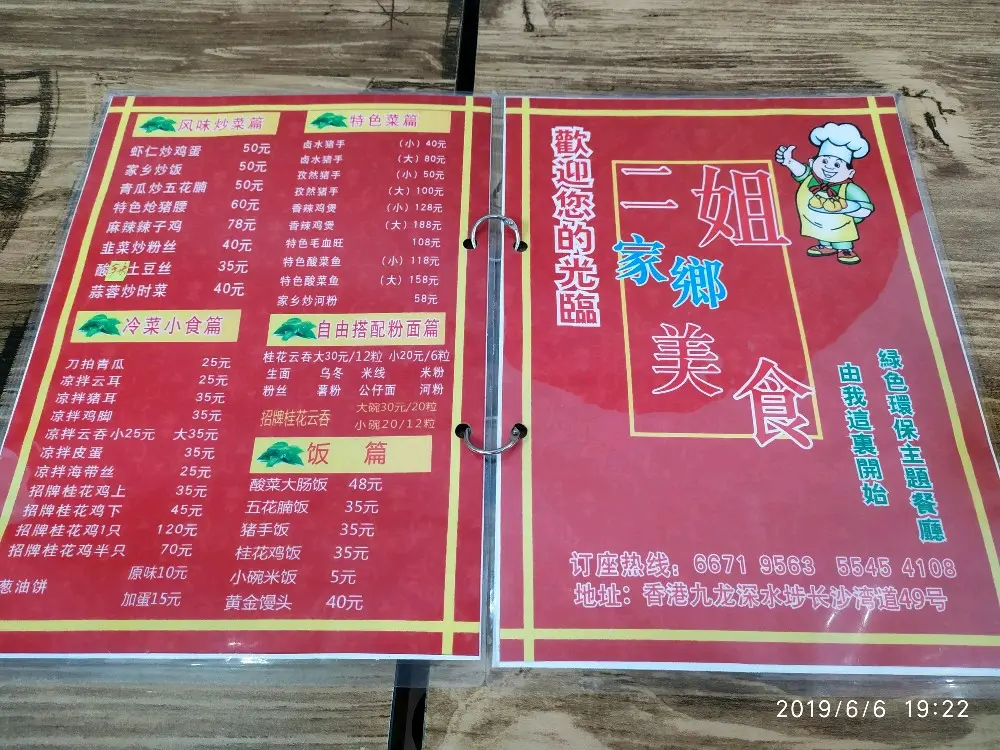 风味炒菜篇
虾仁炒鸡蛋 50元
家乡炒饭 50元
青瓜炒五花腩 50元
特色炝猪腰 60元
麻辣辣子鸡 78元
韭菜炒粉丝 40元
酸土豆丝 35元
蒜蓉炒时菜 40元
特色菜篇
卤水猪手 （小）40元
卤水猪手 （大）80元
孜然猪手 （小）50元
孜然猪手 （大）100元
香辣鸡煲 （小）128元
香辣鸡煲 （大）188元
特色毛血旺 108元
特色酸菜鱼 （小）118元
特色酸菜鱼 （大）158元
家乡炒河粉 58元
冷菜小食篇
刀拍青瓜 25元
凉拌云耳 25元
凉拌猪耳 35元
凉拌鸡脚 35元
凉拌云吞 小25元 大35元
凉拌皮蛋 35元
凉拌海带丝 25元
招牌桂花鸡上 35元
招牌桂花鸡下 45元
招牌桂花鸡1只 120元
招牌桂花鸡半只 70元
葱油饼
原味10元
加蛋15元
自由搭配粉面篇
桂花云吞大30元/12粒 小20元/6粒
生面 乌冬 米线 米粉
粉丝 薯粉 公仔面 河粉
招牌桂花云吞
大碗30元/20粒
小碗20/12粒
饭 篇
酸菜大肠饭 48元
五花腩饭 35元
猪手饭 35元
桂花鸡饭 35元
小碗米饭 5元
黄金馒头 40元
歡迎您的光臨
二姐
家鄉
美食
綠色環保主題餐廳
由我這裏開始
订座热线：6671 9563 5545 4108
地址：香港九龙深水埗长沙湾道49号
2019/6/6 19:22